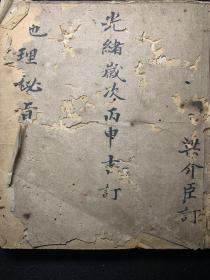 梁介臣訂
光緒歲次丙申吉訂
也理秘旨